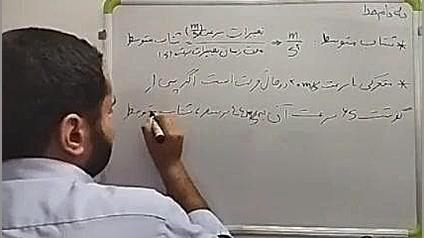 به نام خدا
* شتاب متوسط : m/s² → تغییرات سرعت (m/s) / مدت زمان تغییرات سرعت (s) = شتاب متوسط
* متحرکی با سرعت 20 m/s در حال حرکت است اگر پس از
گذشت 6s سرعت آن به برسد، شتاب متوسط